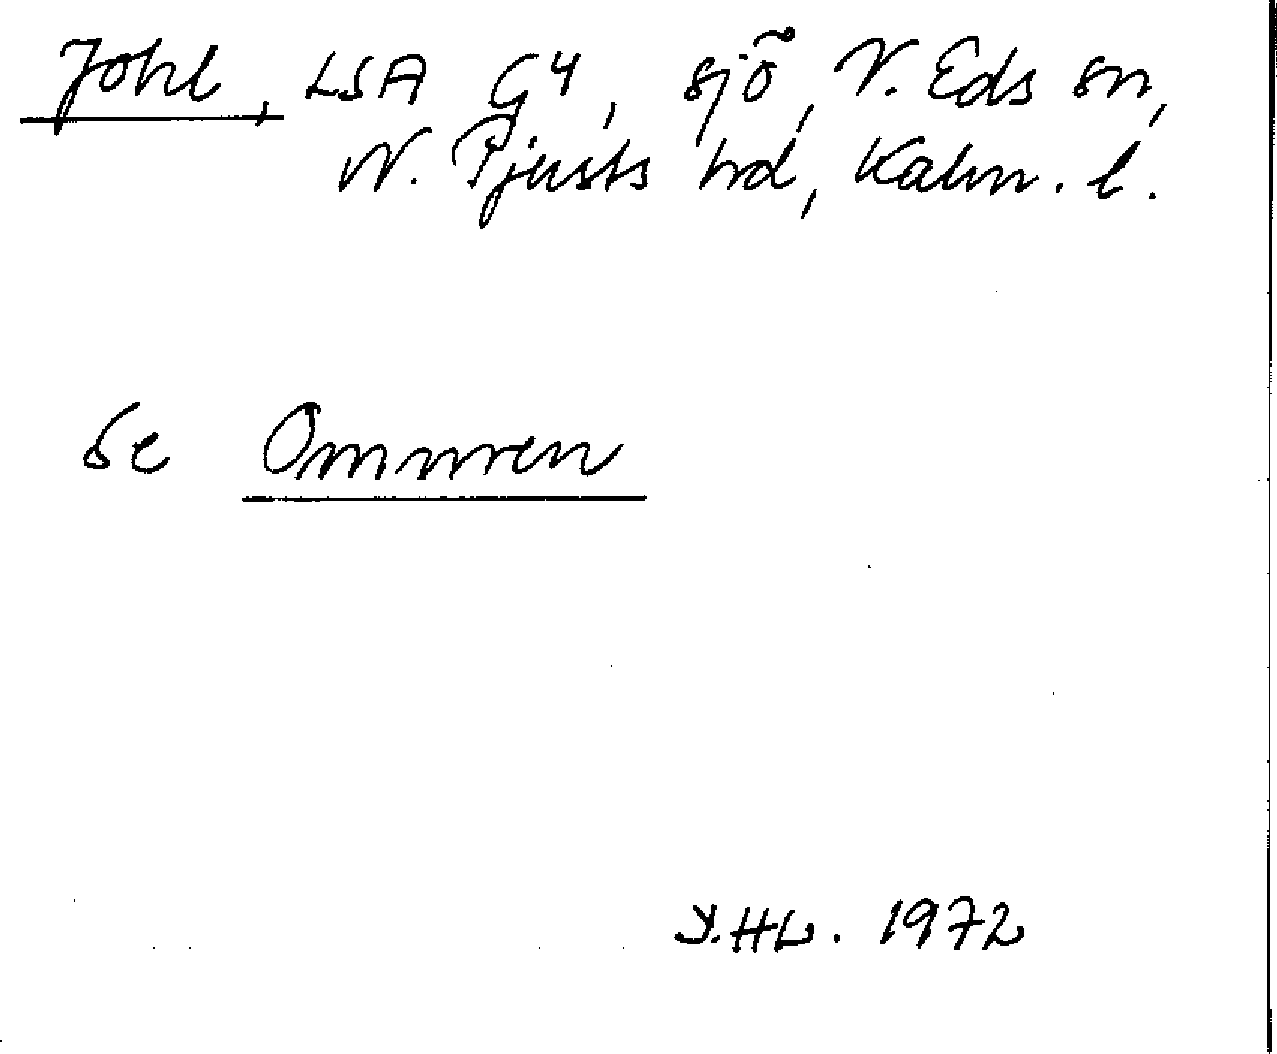 Johl, LSA G4, sjö, V. Eds sn,
N. Tjusts hd, Kalm. l.
Se Ommen
Y.HL. 1972